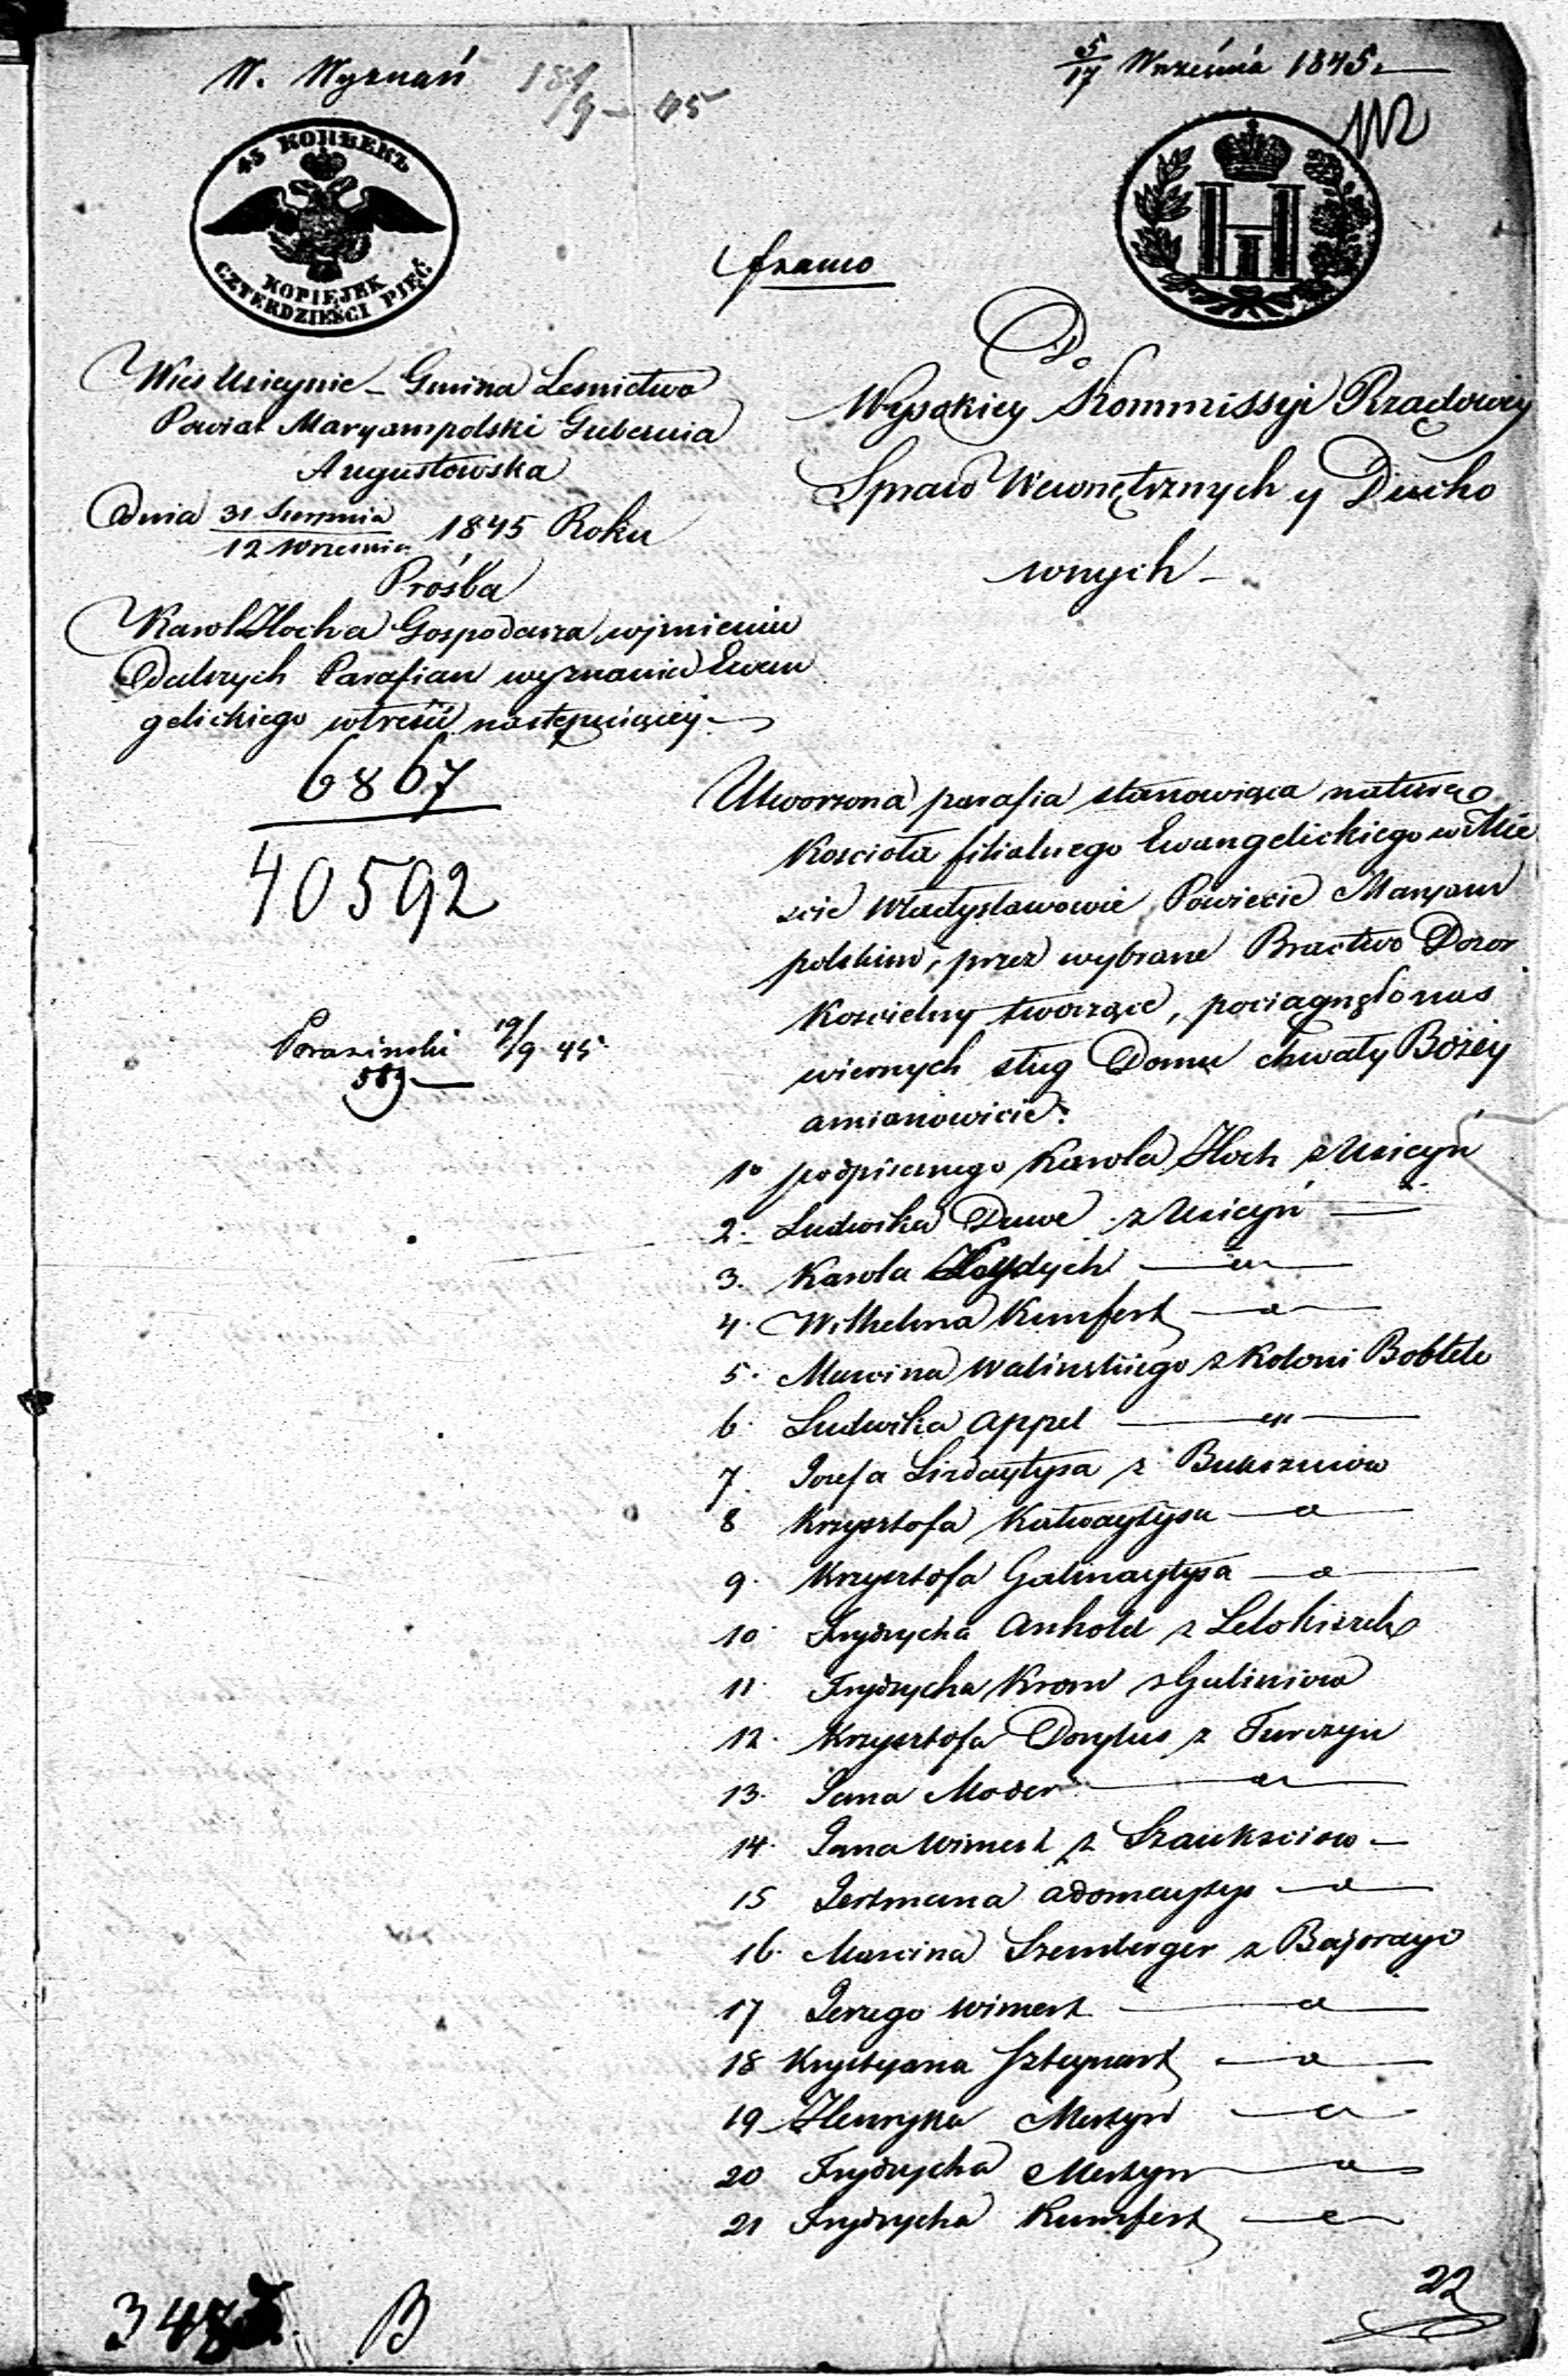 W. Wyznań
18/9 – 45
5/17 Września 1845
112
45 КОПѢЕКЪ
KOPIEJEK
CZTERDZIEŚCI PIĘĆ
H I
franco
Wieś Usicynie – Gmina Lesnictwo
Powiat Maryampolski Gubernia
Augustowska
Dnia 31 Sierpnia / 12 Wrzesnia 1845 Roku
Prośba
Karol Hocha Gospodarza wjmieniu
Dalszych Parafian wyznania Ewan
gelickiego wtreści następuiącey
6867
40592
19/9 45
Do
Wysokiey Kommissyi Rządowey
Spraw Wewnętrznych y Ducho
wnych –
Utworzona parafia stanowiąca naturę
Koscioła filialnego Ewangelickiego w Mie
scie Władysławowie Powiecie Maryam
polskim, przez wybrane Bractwo Dozor
Koscielny tworzące, pociągnęło nas
wiernych sług Domu chwały Bożey
amianowicie:
1o podpisanego Karola Hoch z Usicyn
2. Ludwika Duwe z Usicyn
3. Karola
4. Wilhelma Kumfert
5. Marcina Walinskiego z Koloni Boblele
6 Ludwika Appel
7. Jozefa Lindaytysa z
8 Krzysztofa Katwaytysa
9. Krzysztofa Galinaytysa
10 Frydrycha Anhold z
11. Frydrycha Krom z Galiniow
12. Krzysztofa Dorylus z Turczyn
13. Jana Moder
14. Jana Wimert z Szauksciow –
15 Jertmana Adomaytys
16. Marcina Szemberger z Bajorayc
17 Jerzego Wimert
18 Krystyana Szteynart
19 Henryka Mertyn
20 Frydrycha Mertyn
21 Frydrycha Kumfert
22
B